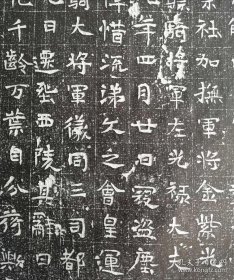 社加撫軍將金紫光
騎將軍左光祿大夫
年四月廿日寇盜塵
惜流涕久之會皇運
騎大將軍儀同三司都
日遷塟西陵其辭曰
化千齡万葉自公荷